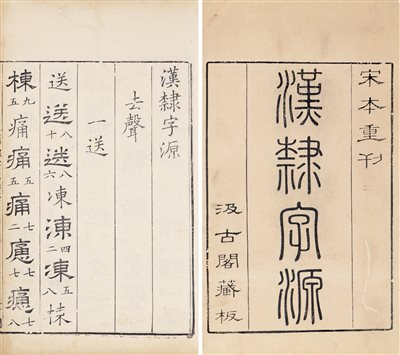 宋本重刋
漢隸字源
汲古閣藏板
漢隸字源
去聲
一送
送送八十送八六凍涷四二凍五八棟
棟九五痛痛五五痛七二慟七七痛七八